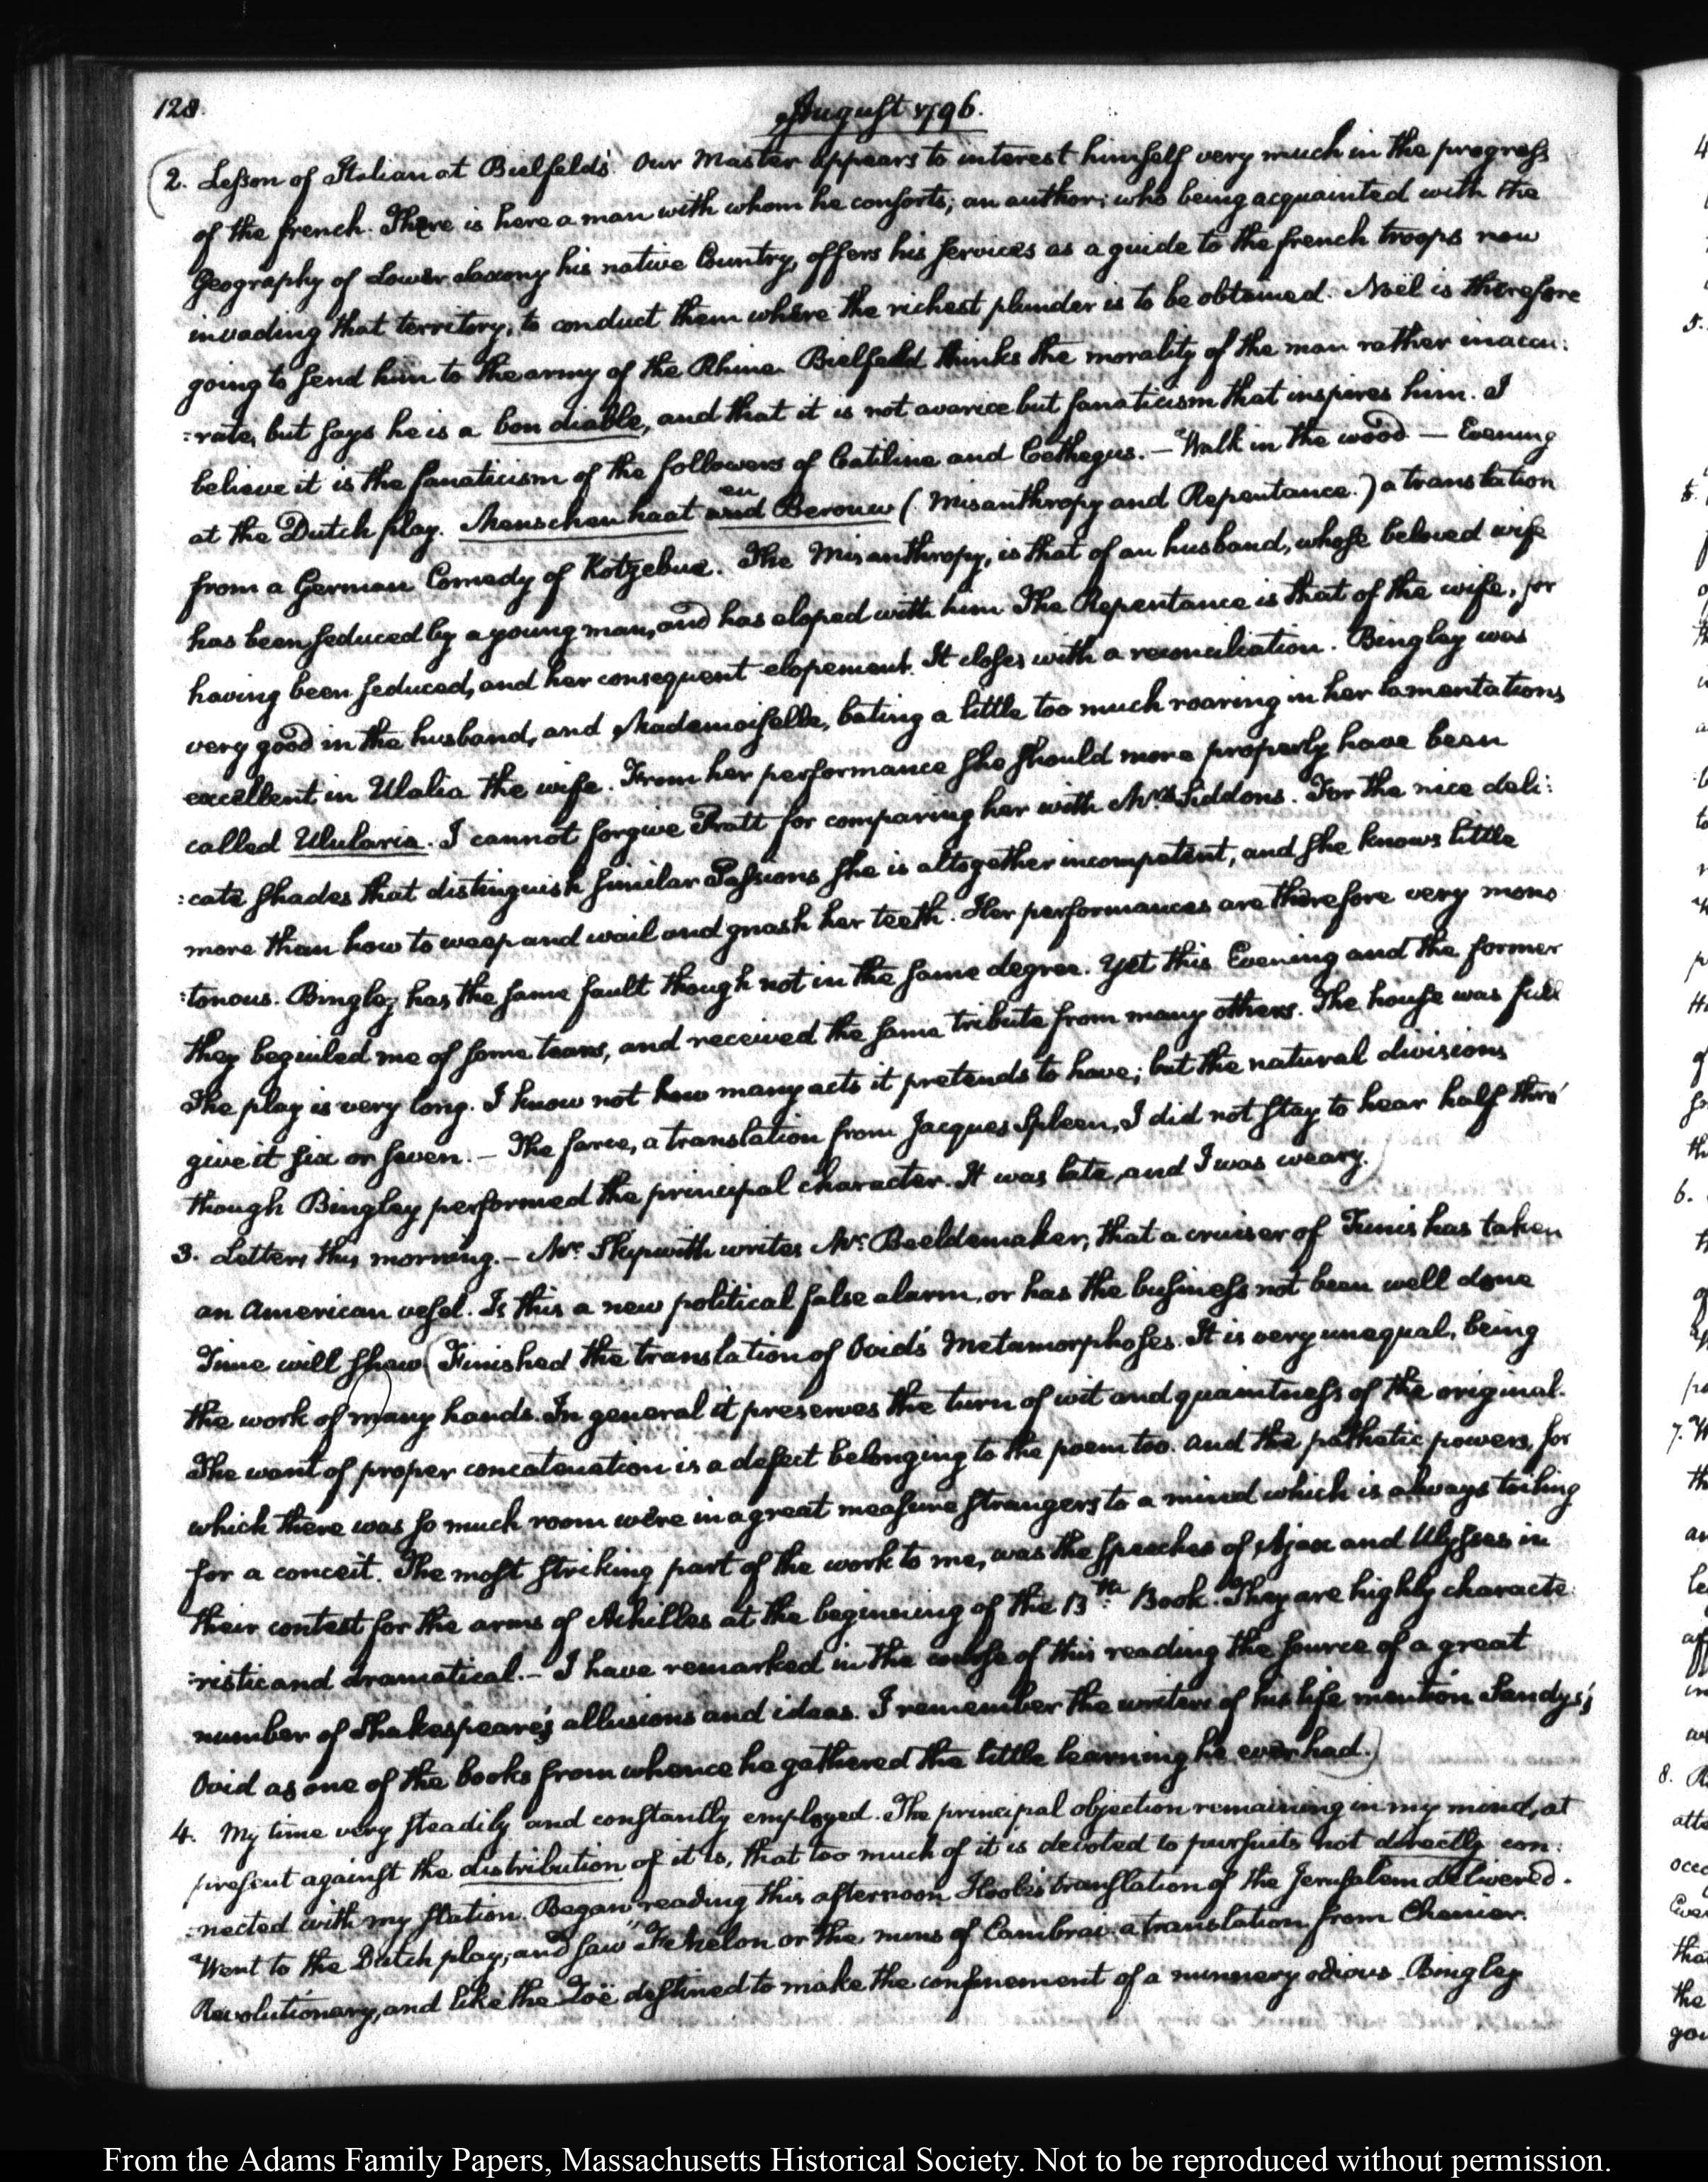 128.
August 1796.
2. Lesson of Italian at Bielfeld's. Our Master appears to interest himself very much in the progress
of the french. There is here a man with whom he consorts; an author; who being acquainted with the
Geography of Lower Saxony his native Country, offers his services as a guide to the french troops now
invading that territory, to conduct them where the richest plunder is to be obtained. Noël is therefore
going to send him to the army of the Rhine. Bielfeld thinks the morality of the man rather inaccu:
:rate, but says he is a bon diable, and that it is not avarice but fanaticism that inspires him. I
believe it is the fanaticism of the followers of Catiline and Cethegus. — Walk in the wood — Evening
at the Dutch play. Menschenhaat en Berouw (Misanthropy and Repentance.) a translation
from a German Comedy of Kotzebue. The Misanthropy, is that of an husband, whose beloved wife
has been seduced by a young man, and has eloped with him The Repentance is that of the wife, for
having been seduced, and her consequent elopement. It closes with a reconciliation. Bingley was
very good in the husband, and Mademoiselle, bating a little too much roaring in her lamentations
excellent in Ulalia the wife. From her performance she should more properly have been
called Ulularia. I cannot forgive Pratt for comparing her with Mrs. Siddons. For the nice deli:
:cate shades that distinguish similar Passions she is altogether incompetent, and she knows little
more than how to weep and wail and gnash her teeth. Her performances are therefore very mono
:tonous. Bingley has the same fault though not in the same degree. Yet this Evening and the former
they beguiled me of some tears, and received the same tribute from many others. The house was full
The play is very long. I know not how many acts it pretends to have; but the natural divisions
give it six or seven. — The farce, a translation from Jacques Spleen, I did not stay to hear half thro'
though Bingley performed the principal character. It was late, and I was weary.)
3. Letters this morning. — Mr. Skipwith writes Mr. Beeldemaker, that a cruiser of Tunis has taken
an American vessel. Is this a new political false alarm, or has the business not been well done
Time will shew (Finished the translation of Ovid's Metamorphoses. It is very unequal, being
the work of many hands. In general it preserves the turn of wit and quaintness of the original.
The want of proper concatenation is a defect belonging to the poem too. and the pathetic powers, for
which there was so much room were in a great measure strangers to a mind which is always toiling
for a conceit. The most striking part of the work to me, was the speeches of Ajax and Ulysses in
their contest for the arms of Achilles at the beginning of the 13th. Book. They are highly characte
:ristic and dramatical. — I have remarked in the course of this reading the source of a great
number of Shakespeare's allusions and ideas. I remember the writers of his life mention Sandys's
Ovid as one of the books from whence he gathered the little learning he ever had.)
4. My time very steadily and constantly employed. The principal objection remaining in my mind, at
present against the distribution of it is, that too much of it is devoted to pursuits not directly con:
:nected with my station. Began reading this afternoon Hoole's translation of the Jerusalem delivered.
Went to the Dutch play, and saw "Fenelon or the nuns of Cambrai. a translation from Chenier.
Revolutionary, and like the Zoë destined to make the confinement of a nunnery odious. Bingley
From the Adams Family Papers, Massachusetts Historical Society. Not to be reproduced without permission.